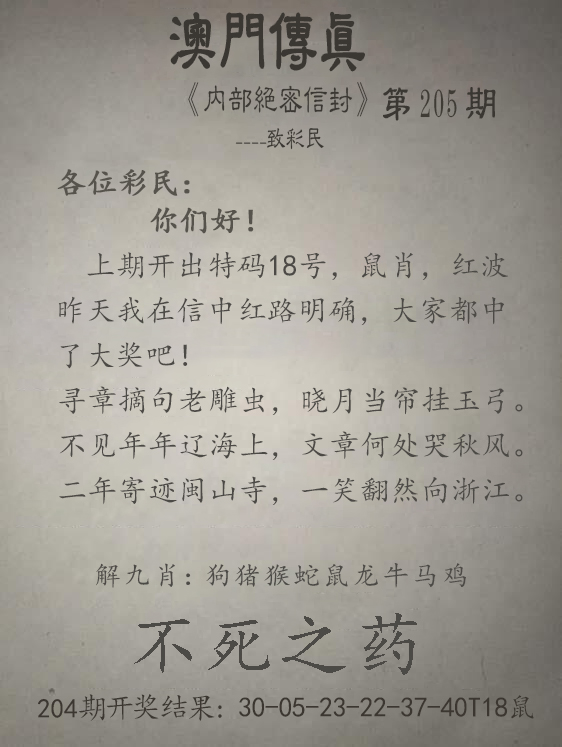 澳門傳眞
《内部絕密信封》第205期
----致彩民
各位彩民：
你们好！
上期开出特码18号，鼠肖，红波
昨天我在信中红路明确，大家都中
了大奖吧！
寻章摘句老雕虫，晓月当帘挂玉弓。
不见年年辽海上，文章何处哭秋风。
二年寄迹闽山寺，一笑翻然向浙江。
解九肖：狗猪猴蛇鼠龙牛马鸡
不死之药
204期开奖结果：30-05-23-22-37-40T18鼠